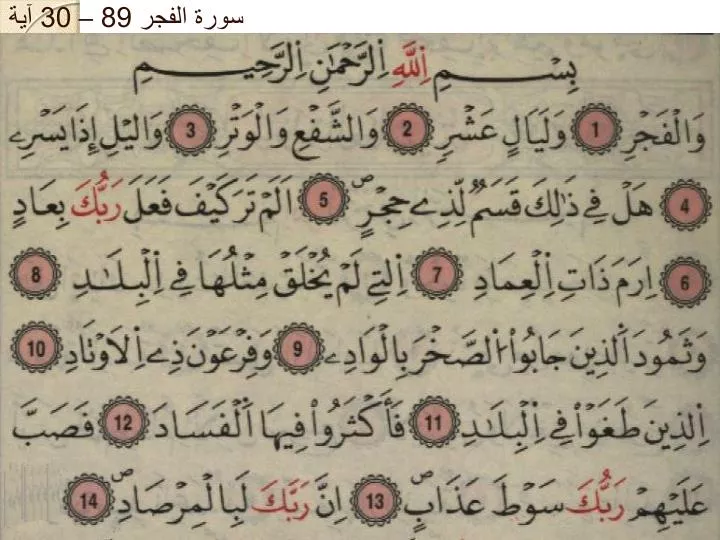 سورة الفجر 89 – 30 آية
بِسْمِ اِللَّهِ اِلرَّحْمَٰنِ اِلرَّحِيمِ
وَالْفَجْرِ 1 وَلَيَالٍ عَشْرٍ 2 وَالشَّفْعِ وَالْوَتْرِ 3 وَاليْلِ إِذَا يَسْرِے
4 هَلْ فِے ذَٰلِكَ قَسَمٌ لِّذِے حِجْرٍ 5 اَلَمْ تَرَ كَيْفَ فَعَلَ رَبُّكَ بِعَادٍ
6 اِرَمَ ذَاتِ اِلْعِمَادِ 7 اِلتِے لَمْ يُخْلَقْ مِثْلُهَا فِے اِلْبِلَٰدِ 8
وَثَمُودَ اَلذِينَ جَابُواْ اُلصَّخْرَ بِالْوَادِے 9 وَفِرْعَوْنَ ذِے اِلَاوْتَادِ 10
اِلذِينَ طَغَوْاْ فِے اِلْبِلَٰدِ 11 فَأَكْثَرُواْ فِيهَا اَلْفَسَادَ 12 فَصَبَّ
عَلَيْهِمْ رَبُّكَ سَوْطَ عَذَابٍ 13 اِنَّ رَبَّكَ لَبِالْمِرْصَادِ 14